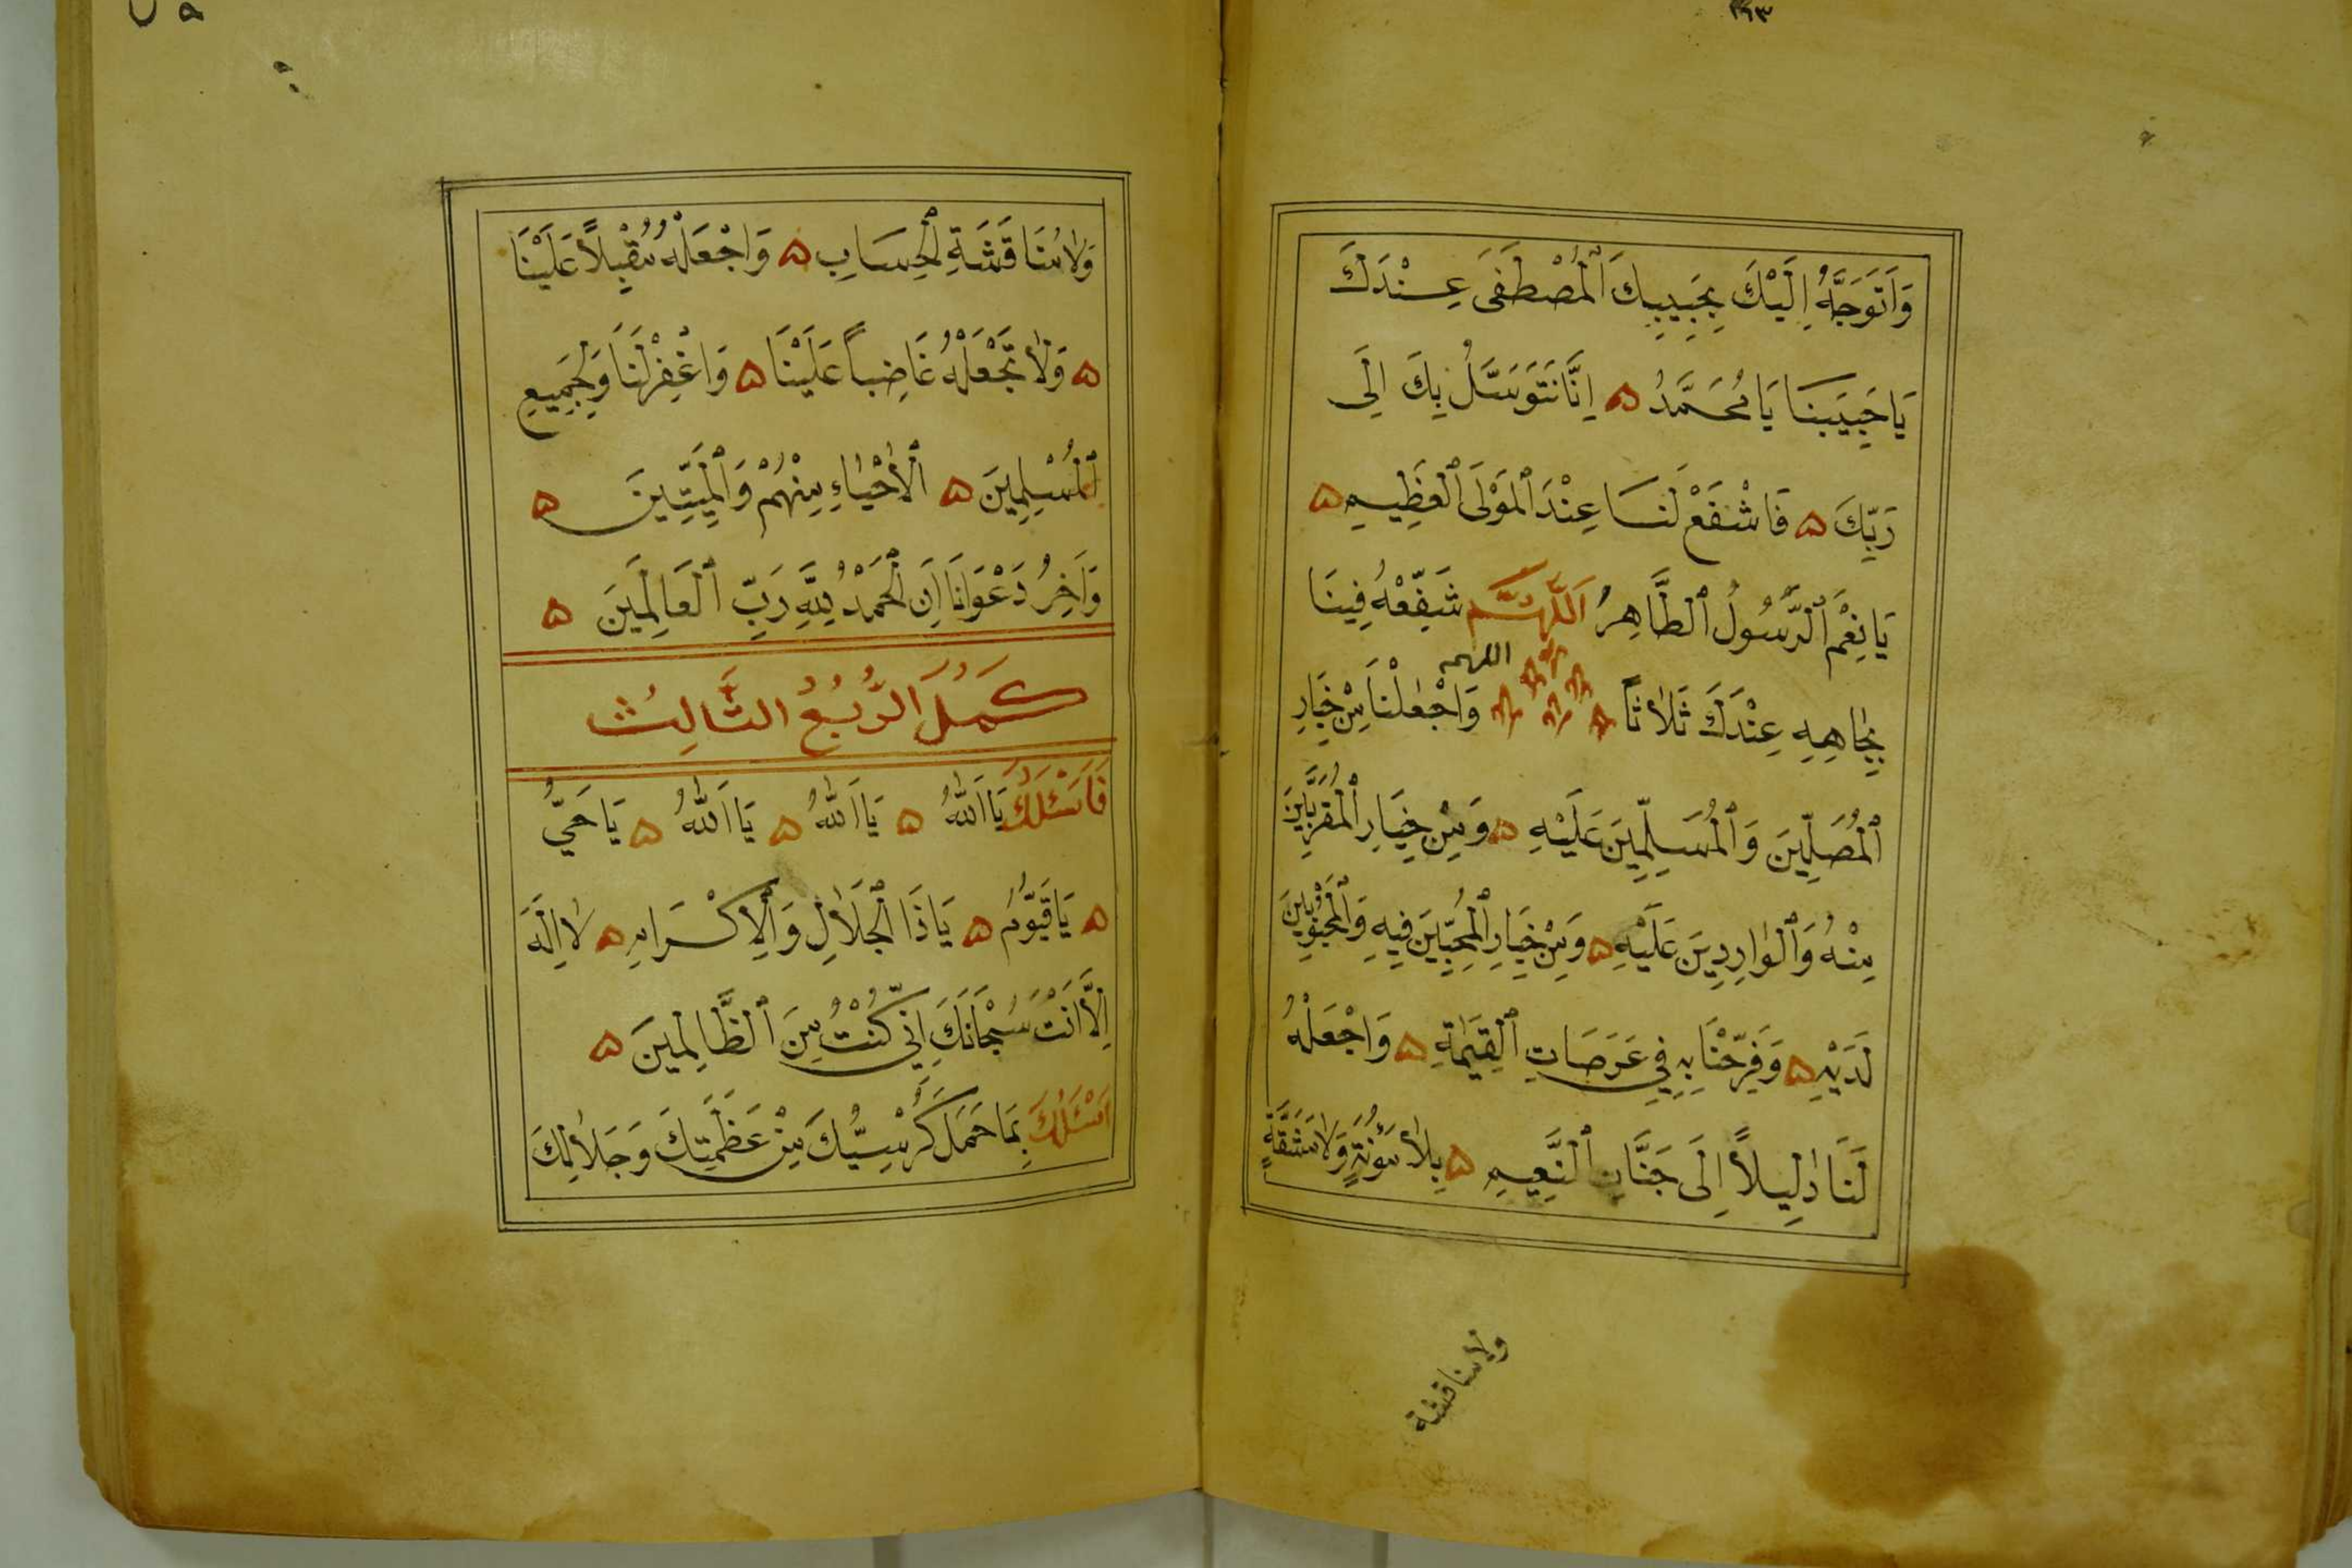 ١٩٣
وَاَتَوَجَّهُ اِلَيْكَ بِحَبِيبِكَ ٱلْمُصْطَفَى عِنْدَكَ
يَا حَبِيبَنَا يَا مُحَمَّدُ ۞ اِنَّا نَتَوَسَّلُ بِكَ اِلَى
رَبِّكَ ۞ فَاشْفَعْ لَنَا عِنْدَ ٱلْمَوْلَى ٱلْعَظِيمِ ۞
يَا نِعْمَ ٱلرَّسُولُ ٱلطَّاهِرُ اَللّٰهُمَّ شَفِّعْهُ فِينَا
بِجَاهِهِ عِنْدَكَ ثَلَاثًا اللهم وَاجْعَلْنَا مِنْ خِيَارِ
ٱلْمُصَلِّينَ وَٱلْمُسَلِّمِينَ عَلَيْهِ ۞ وَمِنْ خِيَارِ ٱلْمُقَرَّبِينَ
مِنْهُ وَٱلْوَارِدِينَ عَلَيْهِ ۞ وَمِنْ خِيَارِ ٱلْمُحِبِّينَ فِيهِ وَٱلْمَحْبُوبِينَ
لَدَيْهِ ۞ وَفَرِّحْنَا بِهِ فِي عَرَصَاتِ ٱلْقِيٰمَةِ ۞ وَاجْعَلْهُ
لَنَا دَلِيلاً اِلَى جَنَّاتِ ٱلنَّعِيمِ ۞ بِلَا مَؤُنَةٍ وَلَا مَشَقَّةٍ
ولا مناقشة
وَلَا مُنَاقَشَةِ ٱلْحِسَابِ ۞ وَاجْعَلْهُ مُقْبِلاً عَلَيْنَا
۞ وَلَا تَجْعَلْهُ غَاضِباً عَلَيْنَا ۞ وَاغْفِرْ لَنَا وَلِجَمِيعِ
ٱلْمُسْلِمِينَ ۞ ٱلْاَحْيَاءِ مِنْهُمْ وَٱلْمَيِّتِينَ ۞
وَاٰخِرُ دَعْوَانَا اَنِ ٱلْحَمْدُ لِلّٰهِ رَبِّ ٱلْعَالَمِينَ ۞
كَمُلَ الرُّبُعُ الثَّالِثُ
فَاَسْئَلُكَ يَا اَللّٰهُ ۞ يَا اَللّٰهُ ۞ يَا اَللّٰهُ ۞ يَا حَيُّ
۞ يَا قَيُّومُ ۞ يَا ذَا ٱلْجَلَالِ وَٱلْاِكْرَامِ ۞ لَا اِلٰهَ
اِلَّا اَنْتَ سُبْحَانَكَ اِنِّي كُنْتُ مِنَ ٱلظَّالِمِينَ ۞
اَسْئَلُكَ بِمَا حَمَلَ كُرْسِيُّكَ مِنْ عَظَمَتِكَ وَجَلَالِكَ